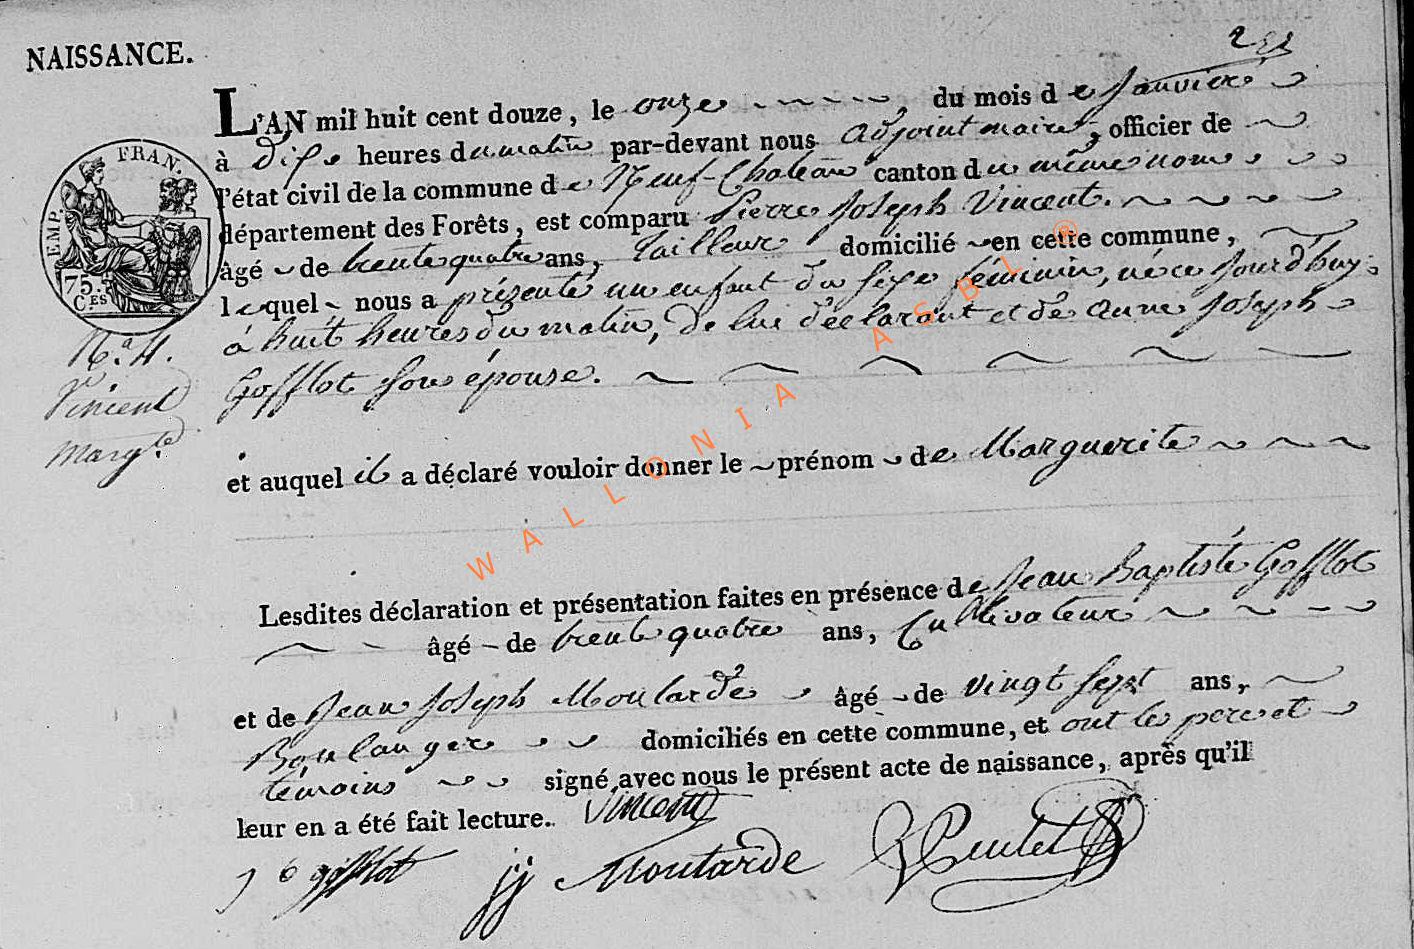 NAISSANCE.
L'AN mil huit cent douze, le onze du mois de Janvier
à dix heures du matin par-devant nous adjoint maire, officier de
l'état civil de la commune de Neuf-Chateau canton du même nom
département des Forêts, est comparu Pierre Joseph Vincent.
âgé de trente quatre ans, tailleur domicilié en cette commune,
lequel nous a présenté un enfant du sexe féminin, née ce jourd'huy
à huit heures du matin, de lui déclarant et de anne Joseph
Gofflot son épouse.
et auquel il a déclaré vouloir donner le prénom de Marguerite
Lesdites déclaration et présentation faites en présence de Jean Baptiste Gofflot
âgé de trente quatre ans, Cultivateur
et de Jean Joseph Moutarde âgé de vingt sept ans,
Boulanger domiciliés en cette commune, et ont les père et
témoins signé avec nous le présent acte de naissance, après qu'il
leur en a été fait lecture. Vincent
gofflot jj Moutarde
EMP. FRAN.
75.
C.ES
N.° 4.
Vincent
Marg.te
WALLONIA ASBL ®